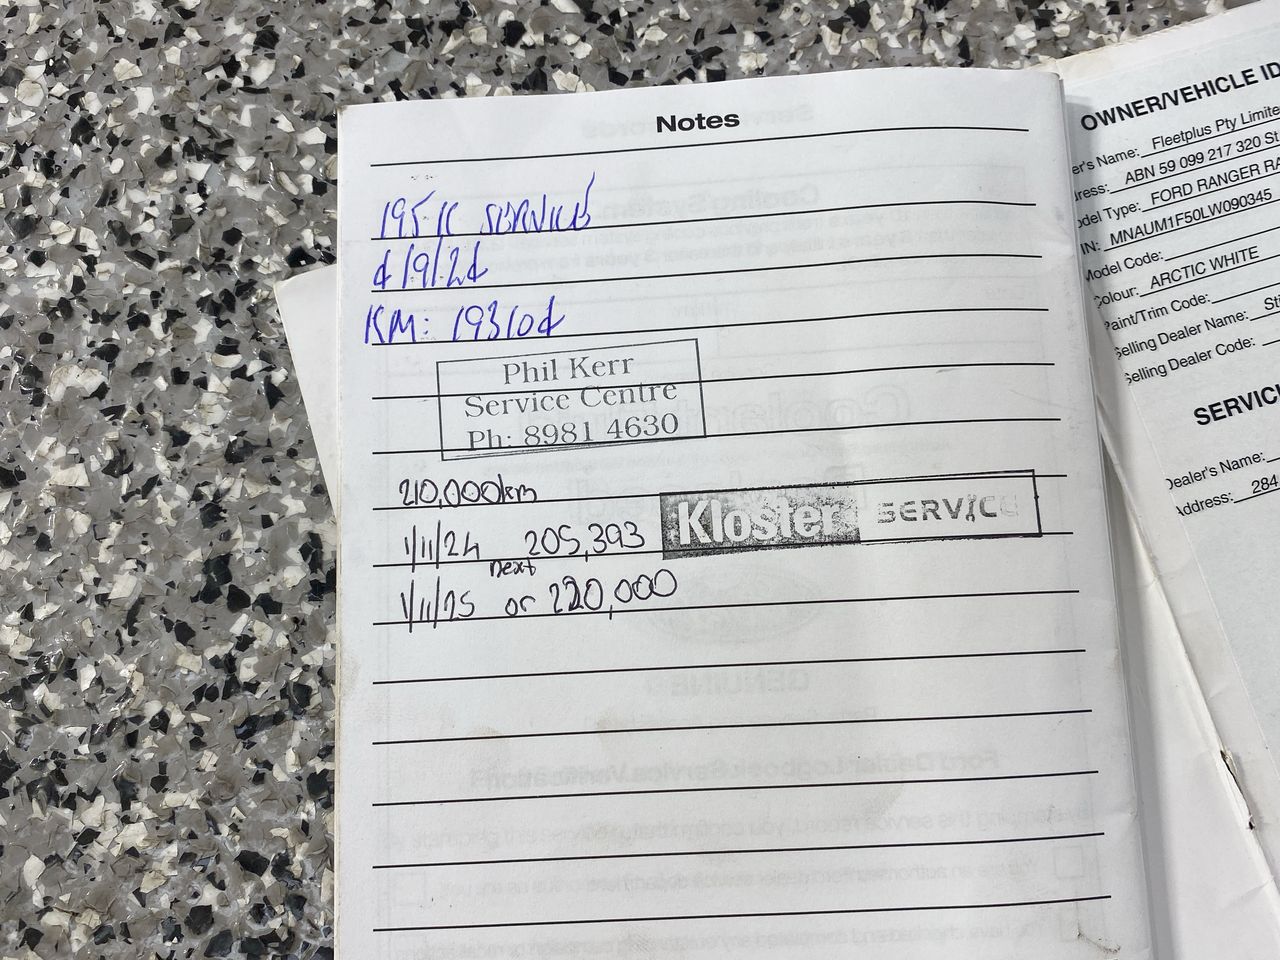 Notes
195K SERVICE
4/9/24
KM: 193104
Phil Kerr
Service Centre
Ph: 8981 4630
210,000km
1/11/24 205,393
Kloster SERVICE
next
1/11/25 or 220,000
OWNER/VEHICLE ID
er's Name: Fleetplus Pty Limite
ress: ABN 59 099 217 320 St
odel Type: FORD RANGER RA
IN: MNAUM1F50LW090345
Model Code:
Colour: ARCTIC WHITE
Paint/Trim Code:
Selling Dealer Name: Sti
Selling Dealer Code:
SERVIC
Dealer's Name:
Address: 284